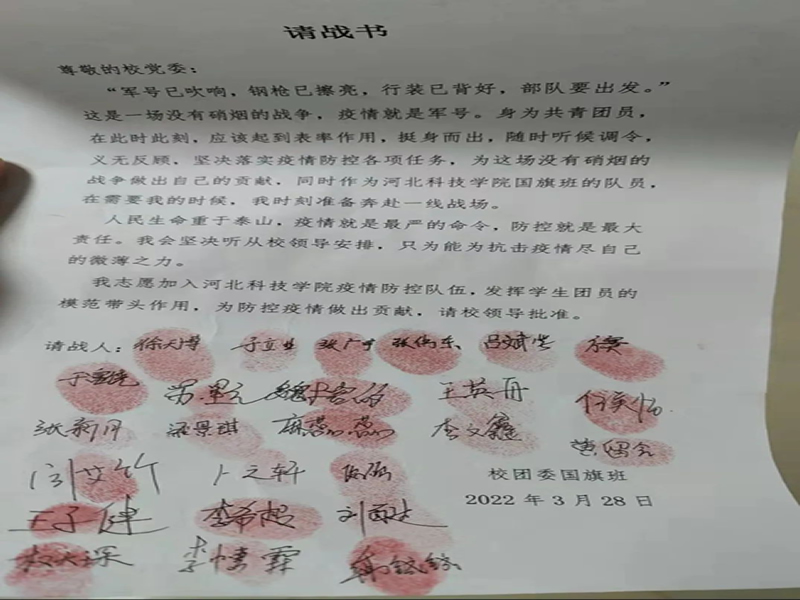 请战书
尊敬的校党委：
“军号已吹响，钢枪已擦亮，行装已背好，部队要出发。”
这是一场没有硝烟的战争，疫情就是军号。身为共青团员，
在此时此刻，应该起到表率作用，挺身而出，随时听候调令，
义无反顾，坚决落实疫情防控各项任务，为这场没有硝烟的
战争做出自己的贡献，同时作为河北科技学院国旗班的队员，
在需要我的时候，我时刻准备奔赴一线战场。
人民生命重于泰山，疫情就是最严的命令，防控就是最大
责任。我会坚决听从校领导安排，只为能为抗击疫情尽自己
的微薄之力。
我志愿加入河北科技学院疫情防控队伍，发挥学生团员的
模范带头作用，为防控疫情做出贡献，请校领导批准。
请战人：徐天博 于立业 张伟东 吕斌生
王英冉
张新月 梁景琪
卜之轩
校团委国旗班
2022 年 3 月 28 日
王子健 李希超
李倩霖